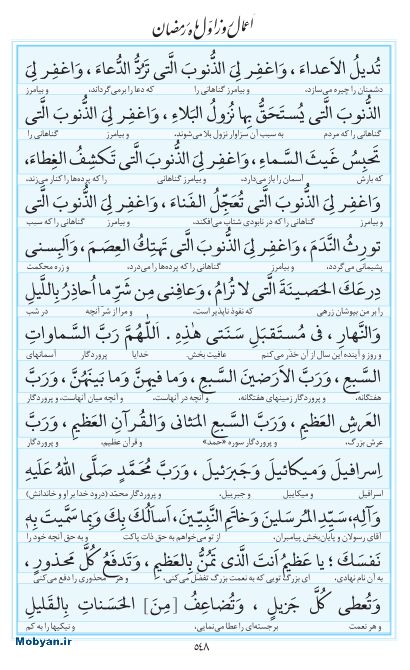 اعمال روز اول ماه رمضان
تُديلُ الاَعداءَ ، وَاغفِر لِيَ الذُّنوبَ الَّتى تَرُدُّ الدُّعاءَ ، وَاغفِر لِيَ
دشمنان را چیره می‌سازد، و بیامرز گناهانی را که دعا را برمی‌گرداند، و بیامرز
الذُّنوبَ الَّتى يُستَحَقُّ بِها نُزولُ البَلاءِ ، وَاغفِر لِيَ الذُّنوبَ الَّتى
گناهانی را که مردم به سبب آن سزاوار نزول بلا می‌شوند، و بیامرز گناهانی را
تَحبِسُ غَيثَ السَّماءِ ، وَاغفِر لِيَ الذُّنوبَ الَّتى تَكشِفُ الغِطاءَ ،
که بارش آسمان را باز می‌دارد، و بیامرز گناهانی را که پرده‌ها را کنار می‌زند،
وَاغفِر لِيَ الذُّنوبَ الَّتى تُعَجِّلُ الفَناءَ ، وَاغفِر لِيَ الذُّنوبَ الَّتى
و بیامرز گناهانی را که در نابودی شتاب می‌افکند، و بیامرز گناهانی را که سبب
تورِثُ النَّدَمَ ، وَاغفِر لِيَ الذُّنوبَ الَّتى تَهتِكُ العِصَمَ ، وَاَلبِسنى
پشیمانی می‌گردد، و بیامرز گناهانی را که پرده‌ها را می‌درد، و زره محکمت
دِرعَكَ الحَصينَةَ الَّتى لا تُرامُ ، وَعافِنى مِن شَرِّ ما اُحاذِرُ بِاللَّيلِ
را بر من بپوشان زرهی که نفوذ ناپذیر است، و مرا از شر آنچه در شب
وَالنَّهارِ ، فى مُستَقبَلِ سَنَتى هٰذِهِ . اَللّٰهُمَّ رَبَّ السَّماواتِ
و روز و آینده این سال از آن حذر می‌کنم عافیت بخش. خدایا پروردگار آسمانهای
السَّبعِ ، وَرَبَّ الاَرَضينَ السَّبعِ ، وَما فيهِنَّ وَما بَينَهُنَّ ، وَرَبَّ
هفتگانه، و پروردگار زمینهای هفتگانه، و آنچه در آنهاست، و آنچه میان آنهاست، و پروردگار
العَرشِ العَظيمِ ، وَرَبَّ السَّبعِ المَثانى وَالقُرآنِ العَظيمِ ، وَرَبَّ
عرش بزرگ، و پروردگار سوره «حمد» و قرآن عظیم، و پروردگار
اِسرافيلَ وَميكائيلَ وَجَبرَئيلَ ، وَرَبَّ مُحَمَّدٍ صَلَّى اللهُ عَلَيهِ
اسرافیل و میکاییل و جبرییل، و پروردگار محمّد (درود خدا بر او و خاندانش)
وَآلِهِ، سَيِّدِ المُرسَلينَ وَخاتَمِ النَّبِيّينَ، اَساَلُكَ بِكَ وَبِما سَمَّيتَ بِهِ
آقای رسولان و پایان‌بخش پیامبران، از تو می‌خواهم به حق ذات پاکت و به حق آنچه خود را
نَفسَكَ ؛ يا عَظيمُ اَنتَ الَّذى تَمُنُّ بِالعَظيمِ ، وَتَدفَعُ كُلَّ مَحذورٍ ،
به آن نام نهادی، ای بزرگ تویی که به نعمت بزرگ تفضل می‌کنی، و هر محذوری را دفع می‌کنی
وَتُعطى كُلَّ جَزيلٍ ، وَتُضاعِفُ [مِنَ] الحَسَناتِ بِالقَليلِ
و هر نعمت برجسته‌ای را عطا می‌نمایی، و نیکیها را به کم
Mobyan.ir
۵۴۸